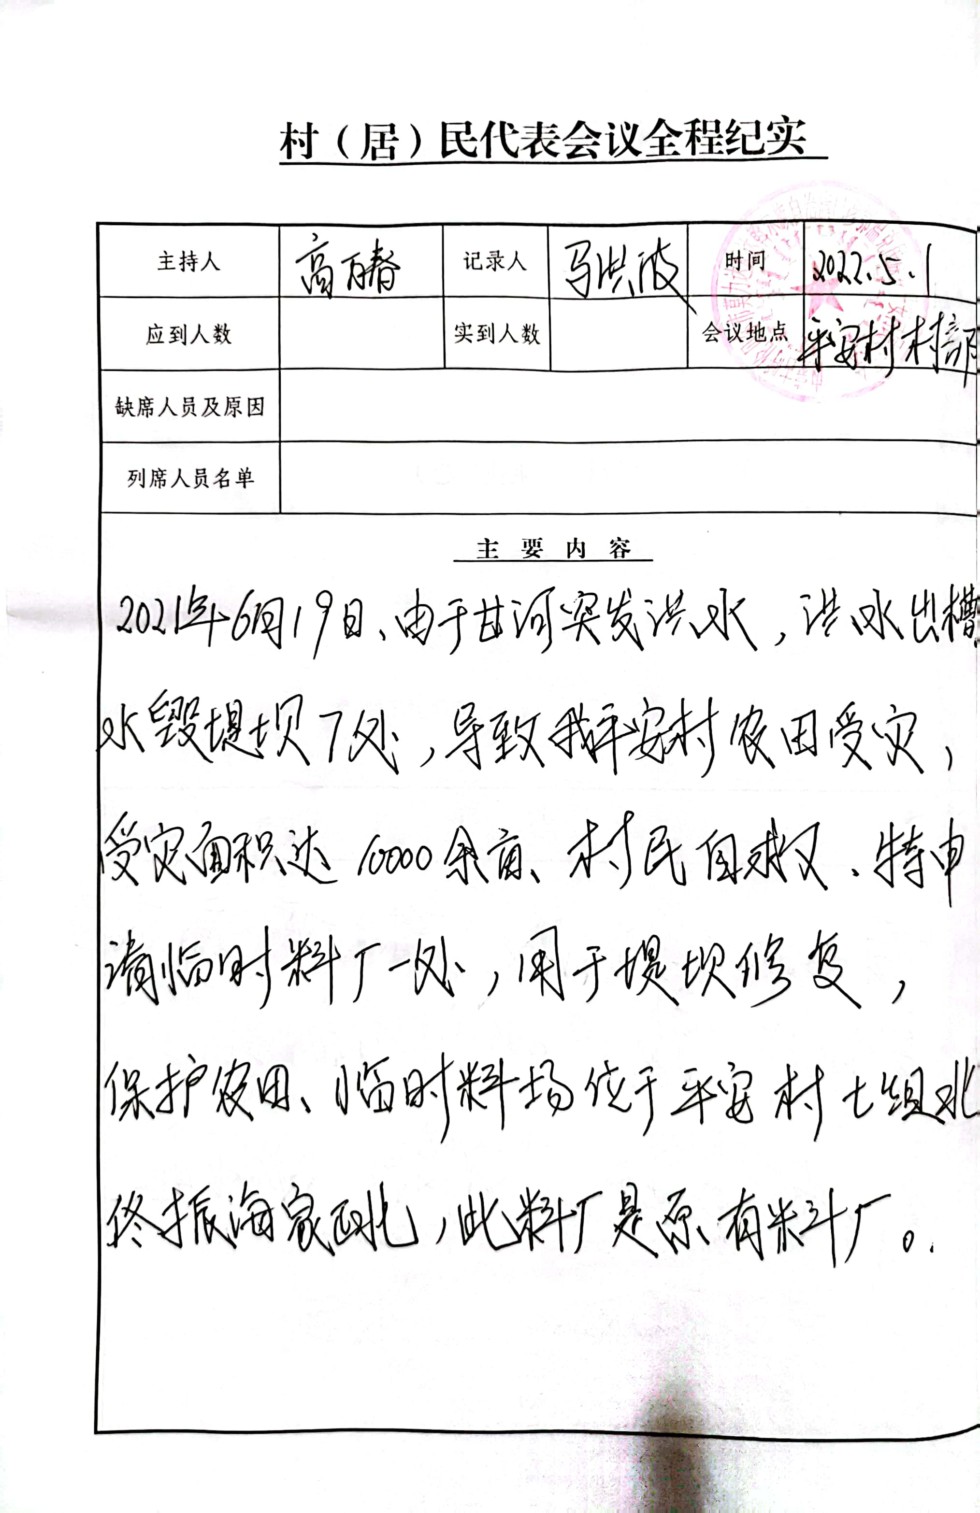 村（居）民代表会议全程纪实
主持人 高万春 记录人 马洪波 时间 2022.5.1
应到人数 实到人数 会议地点 平安村村部
缺席人员及原因
列席人员名单
主要内容
2021年6月19日、由于甘河突发洪水，洪水出槽
水毁堤坝7处，导致我平安村农田受灾，
受灾面积达10000余亩、村民自救、特申
请临时料厂一处，用于堤坝修复，
保护农田、临时料场位于平安村七组北
佟振海家西北，此料厂是原有料厂。